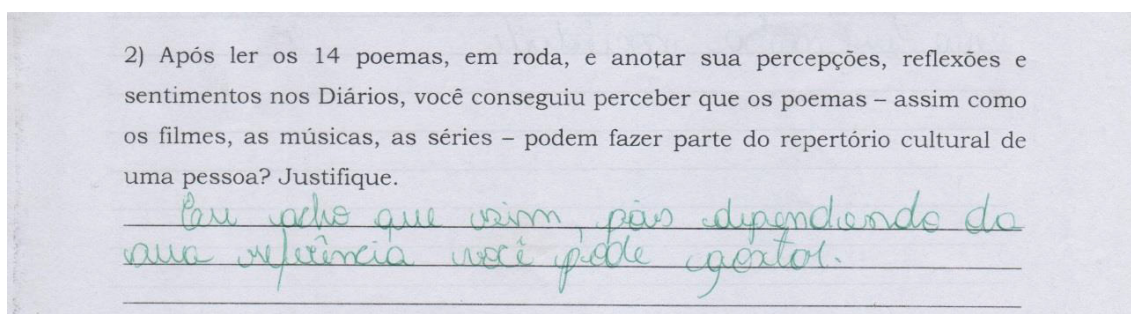 2) Após ler os 14 poemas, em roda, e anotar sua percepções, reflexões e
sentimentos nos Diários, você conseguiu perceber que os poemas – assim como
os filmes, as músicas, as séries – podem fazer parte do repertório cultural de
uma pessoa? Justifique.
Eu acho que sim, pois dependendo da
sua referência você pode gostar.